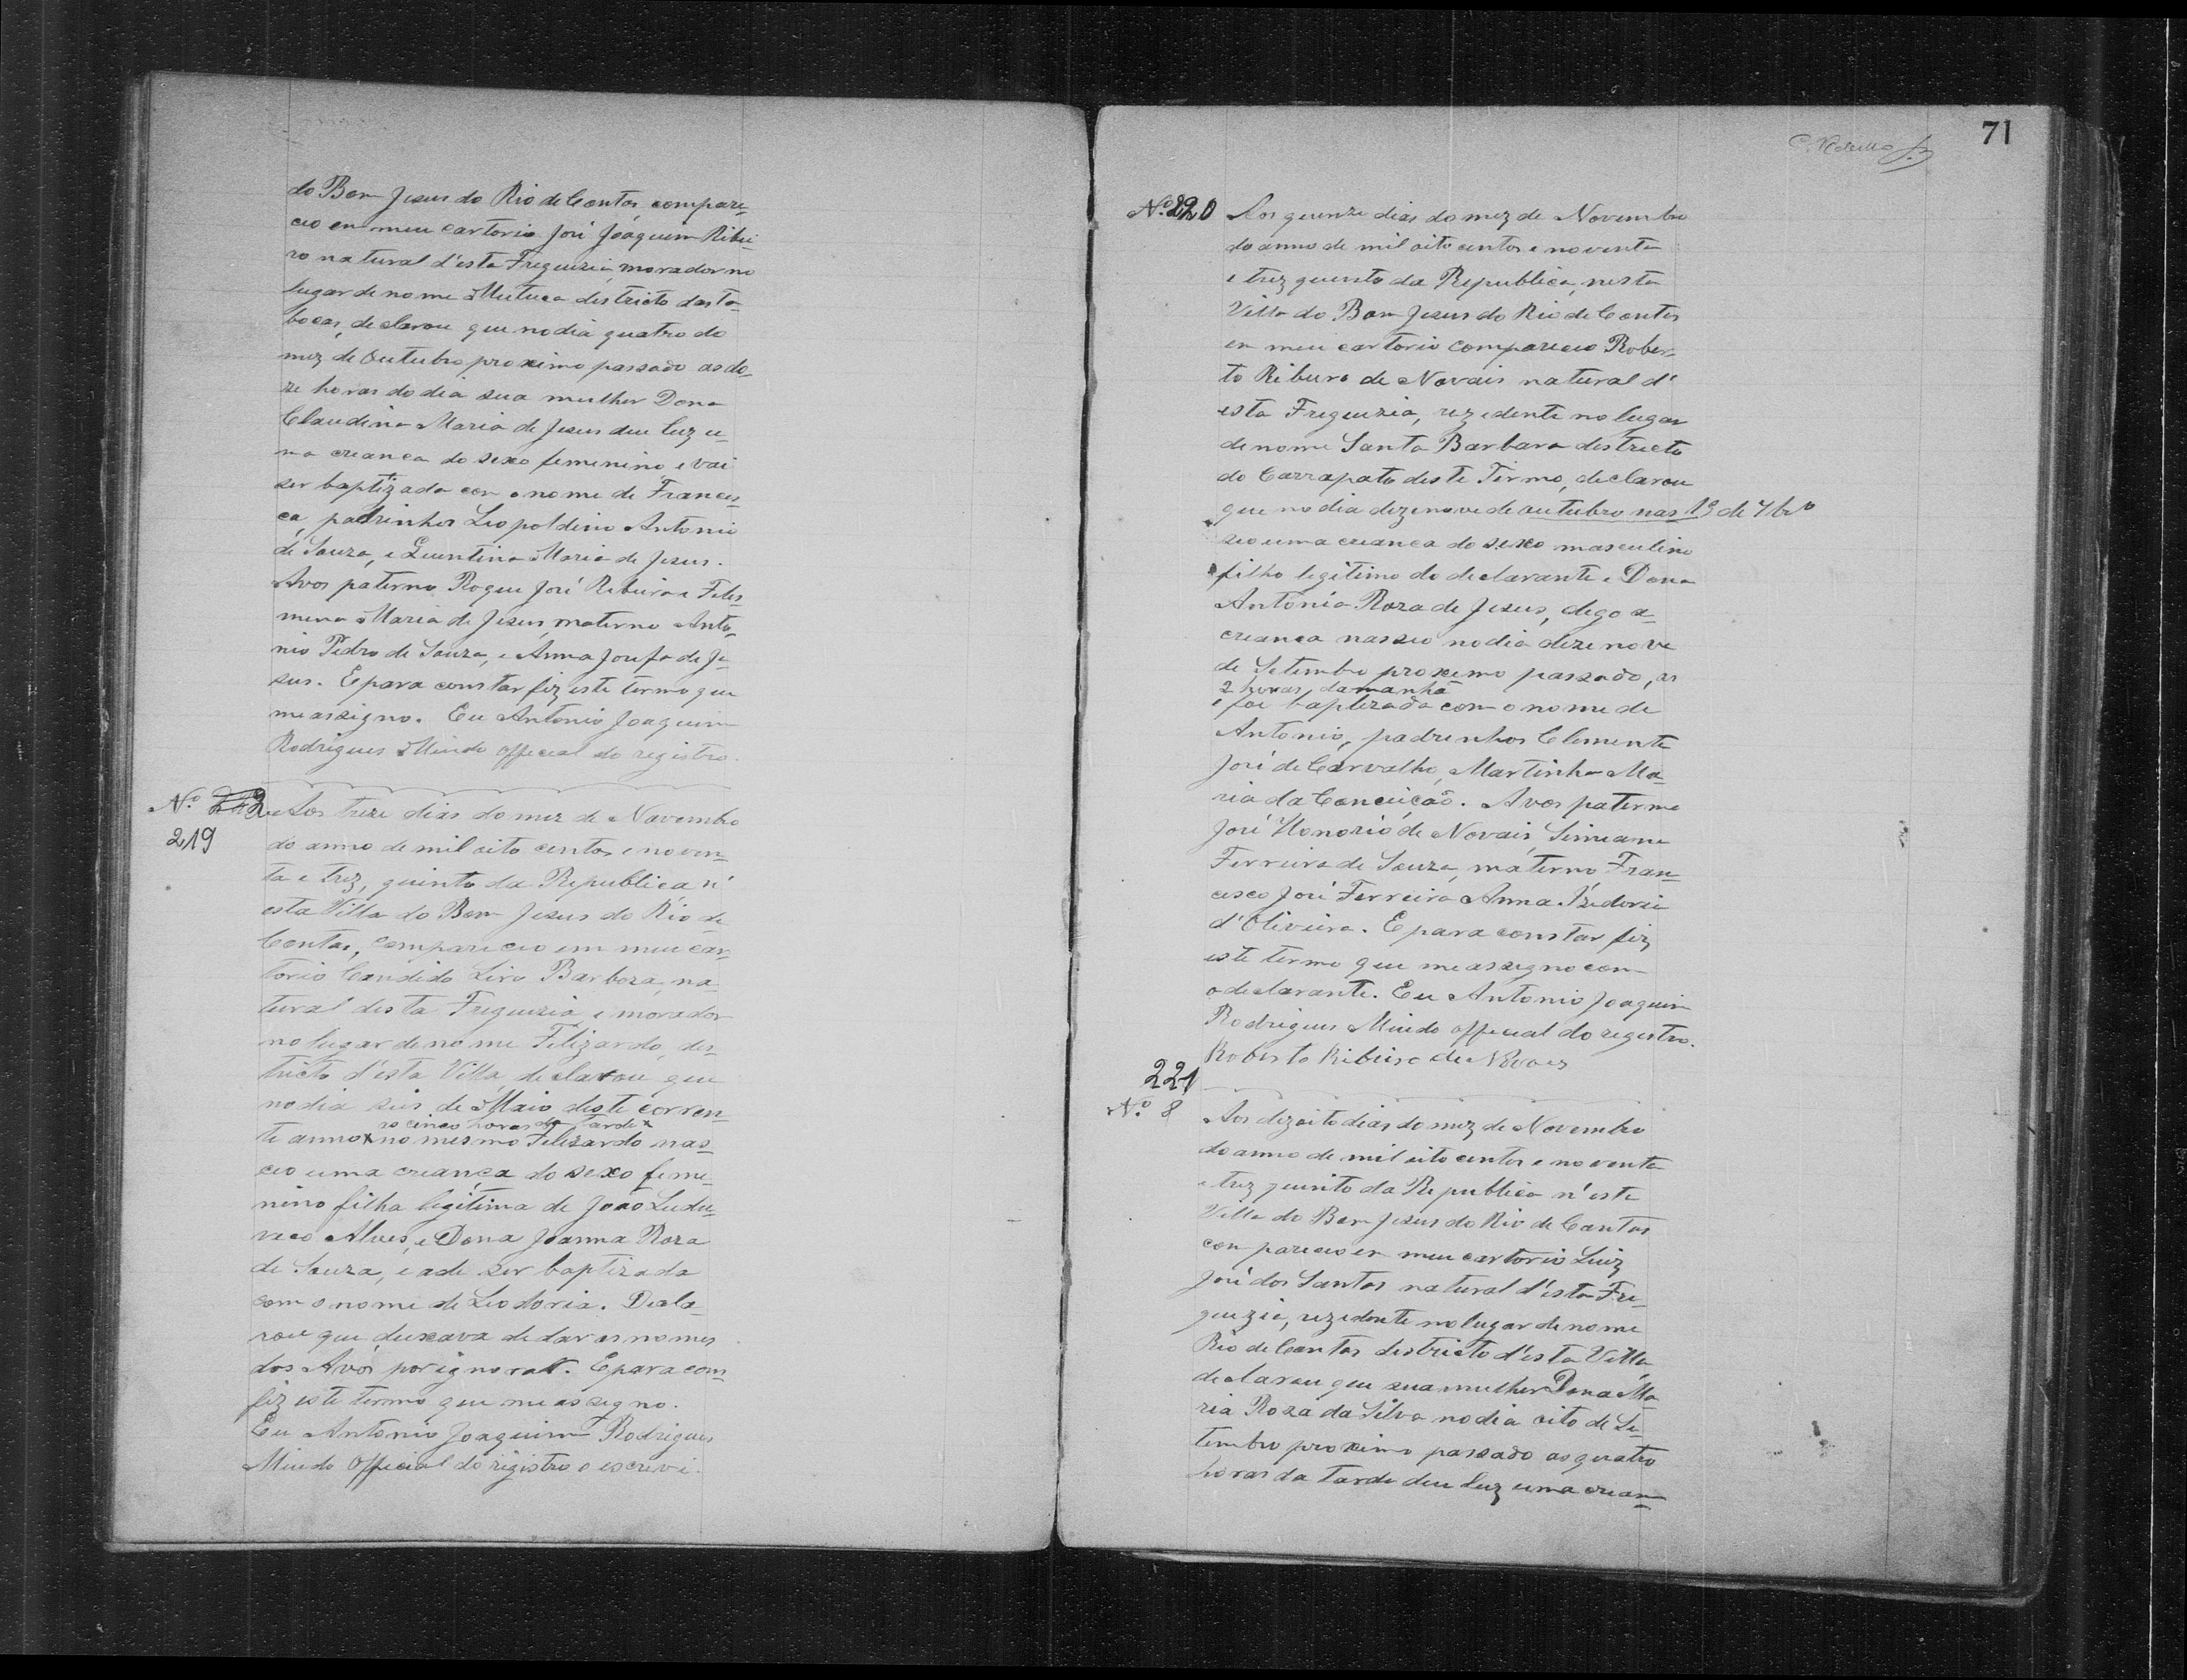 do Bom Jesus do Rio de Contas, compare-
ceo em meu cartorio José Joaquim Ribei-
ro natural d'esta Freguezia, morador no
lugar de nome Mutuca districto das ta-
bocas, declarou que no dia quatro do
mez de Outubro proximo passado as do-
ze horas do dia sua mulher Dona
Claudina Maria de Jesus deu luz u-
ma creanca do sexo femenino e vai
ser baptizada com o nome de Francis-
ca, padrinhos Leopoldino Antonio
de Souza, e Quintina Maria de Jesus.
Avos paterno Roque José Ribeiro e Feles-
mena Maria de Jesus, materno Anto-
nio Pedro de Souza, e Anna Josefa de Je-
sus. E para constar fiz este termo que
me assigno. Eu Antonio Joaquim
Rodrigues Mindo official do registro.
N.º
219
Aos treze dias do mez de Novembro
do anno de mil oito centos e noven-
ta e trez, quinto da Republica n'
esta Villa do Bom Jesus do Rio de
Contas, compareceo em meu car-
torio Candido Lino Barboza, na-
tural desta Freguezia, e morador
no lugar de nome Felizardo, des-
tricto d'esta Villa, declarou que
no dia seis de Maio deste corren-
as cinco horas da tarde x
te anno x no mesmo Felizardo nas-
ceo uma creança do sexo feme-
nino filha legitima de João Ludu-
vico Alves, e Dona Joanna Roza
de Souza, e ade ser baptizada
com o nome de Leodoria. Decla-
rou que deixava de dar os nomes
dos Avós por ignorar. E para cons
fiz este termo que me assegno.
Eu Antonio Joaquim Rodrigues
Mindo Official do registro o escrevi.
71
N.º 220 Aos quinze dias do mez de Novembro
do anno de mil oito centos e noventa
e trez quinto da Republica, nesta
Villa do Bom Jesus do Rio de Contas
em meu cartorio compareceo Rober-
to Ribeiro de Novais natural d'
esta Freguezia, rezedente no lugar
de nome Santa Barbara destricto
do Carrapato deste Termo, declarou
que no dia dezenove de outubro nas 19 de 7br.o
ceo uma creanca do sexo masculino
filho legitimo do declarante e Dona
Antonia Roza de Jesus, dego a
creanca nasceo no dia dezenove
de Setembro proxemo passado, as
2 horas da manhã
e foi baptezada com o nome de
Antonio, padrenhos Clemente
José de Carvalho, Martinha Ma-
ria da Conceição. Avos paterno
José Honorio de Novais, Simeana
Ferreira de Souza, materno Fran-
cisco José Ferreira Anna Izedoria
d'Oliveira. E para constar fiz
este termo que me assegno com
o declarante. Eu Antonio Joaquim
Rodrigues Mindo official do regestro.
Roberto Ribeiro de Novaes
221
N.º 8
Aos dezoito dias do mez de Novembro
do anno de mil oito centos e noventa
e trez quinto da Republica n'esta
Villa do Bom Jesus do Rio de Contas
compareceo em meu cartorio Luiz
José dos Santos natural d'esta Fre-
guezia, rezedente no lugar de nome
Rio de Contas destricto d'esta Villa
declarou que sua mulher Dona Ma-
ria Roza da Silva no dia oito de Se-
tembro proximo passado as quatro
horas da tarde deu luz uma crean-